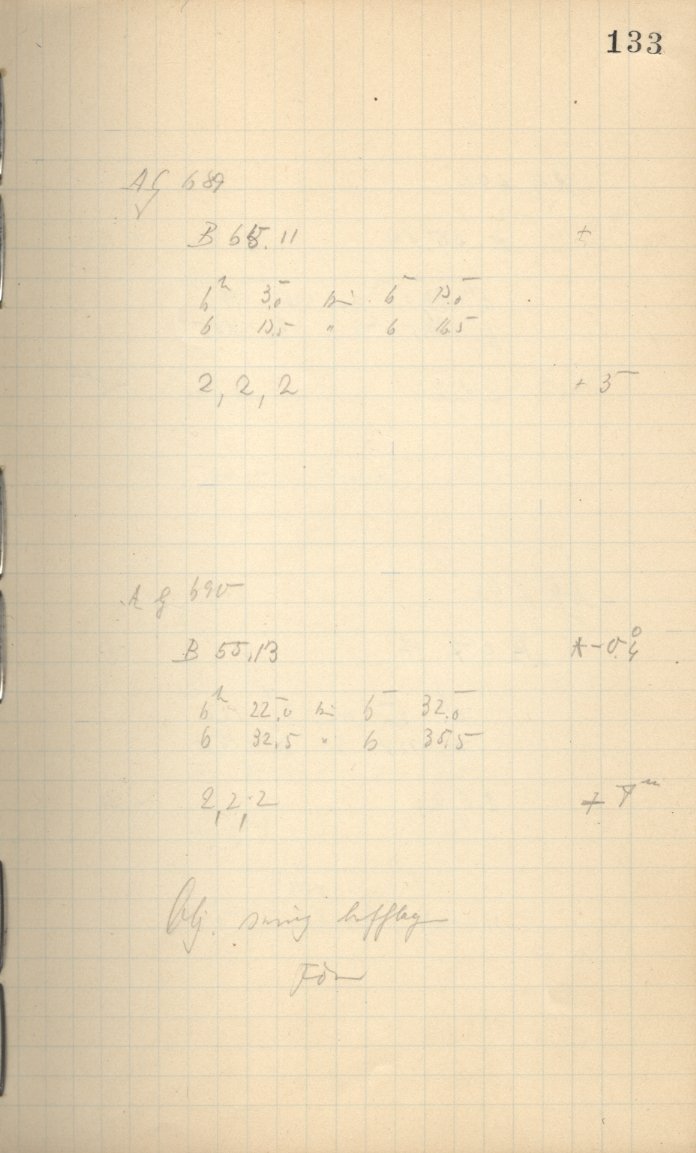 133
AG 689
B 65.11 +
6h 3.0 bis 6 13.0
6 13.5 " 6 16.5
2, 2, 2 + 5
AG 690
B 55.13 * - 0.4
6h 22.0 bis 6 32.0
6 32.5 " 6 35.5
2, 2, 2
Obj.
Fön